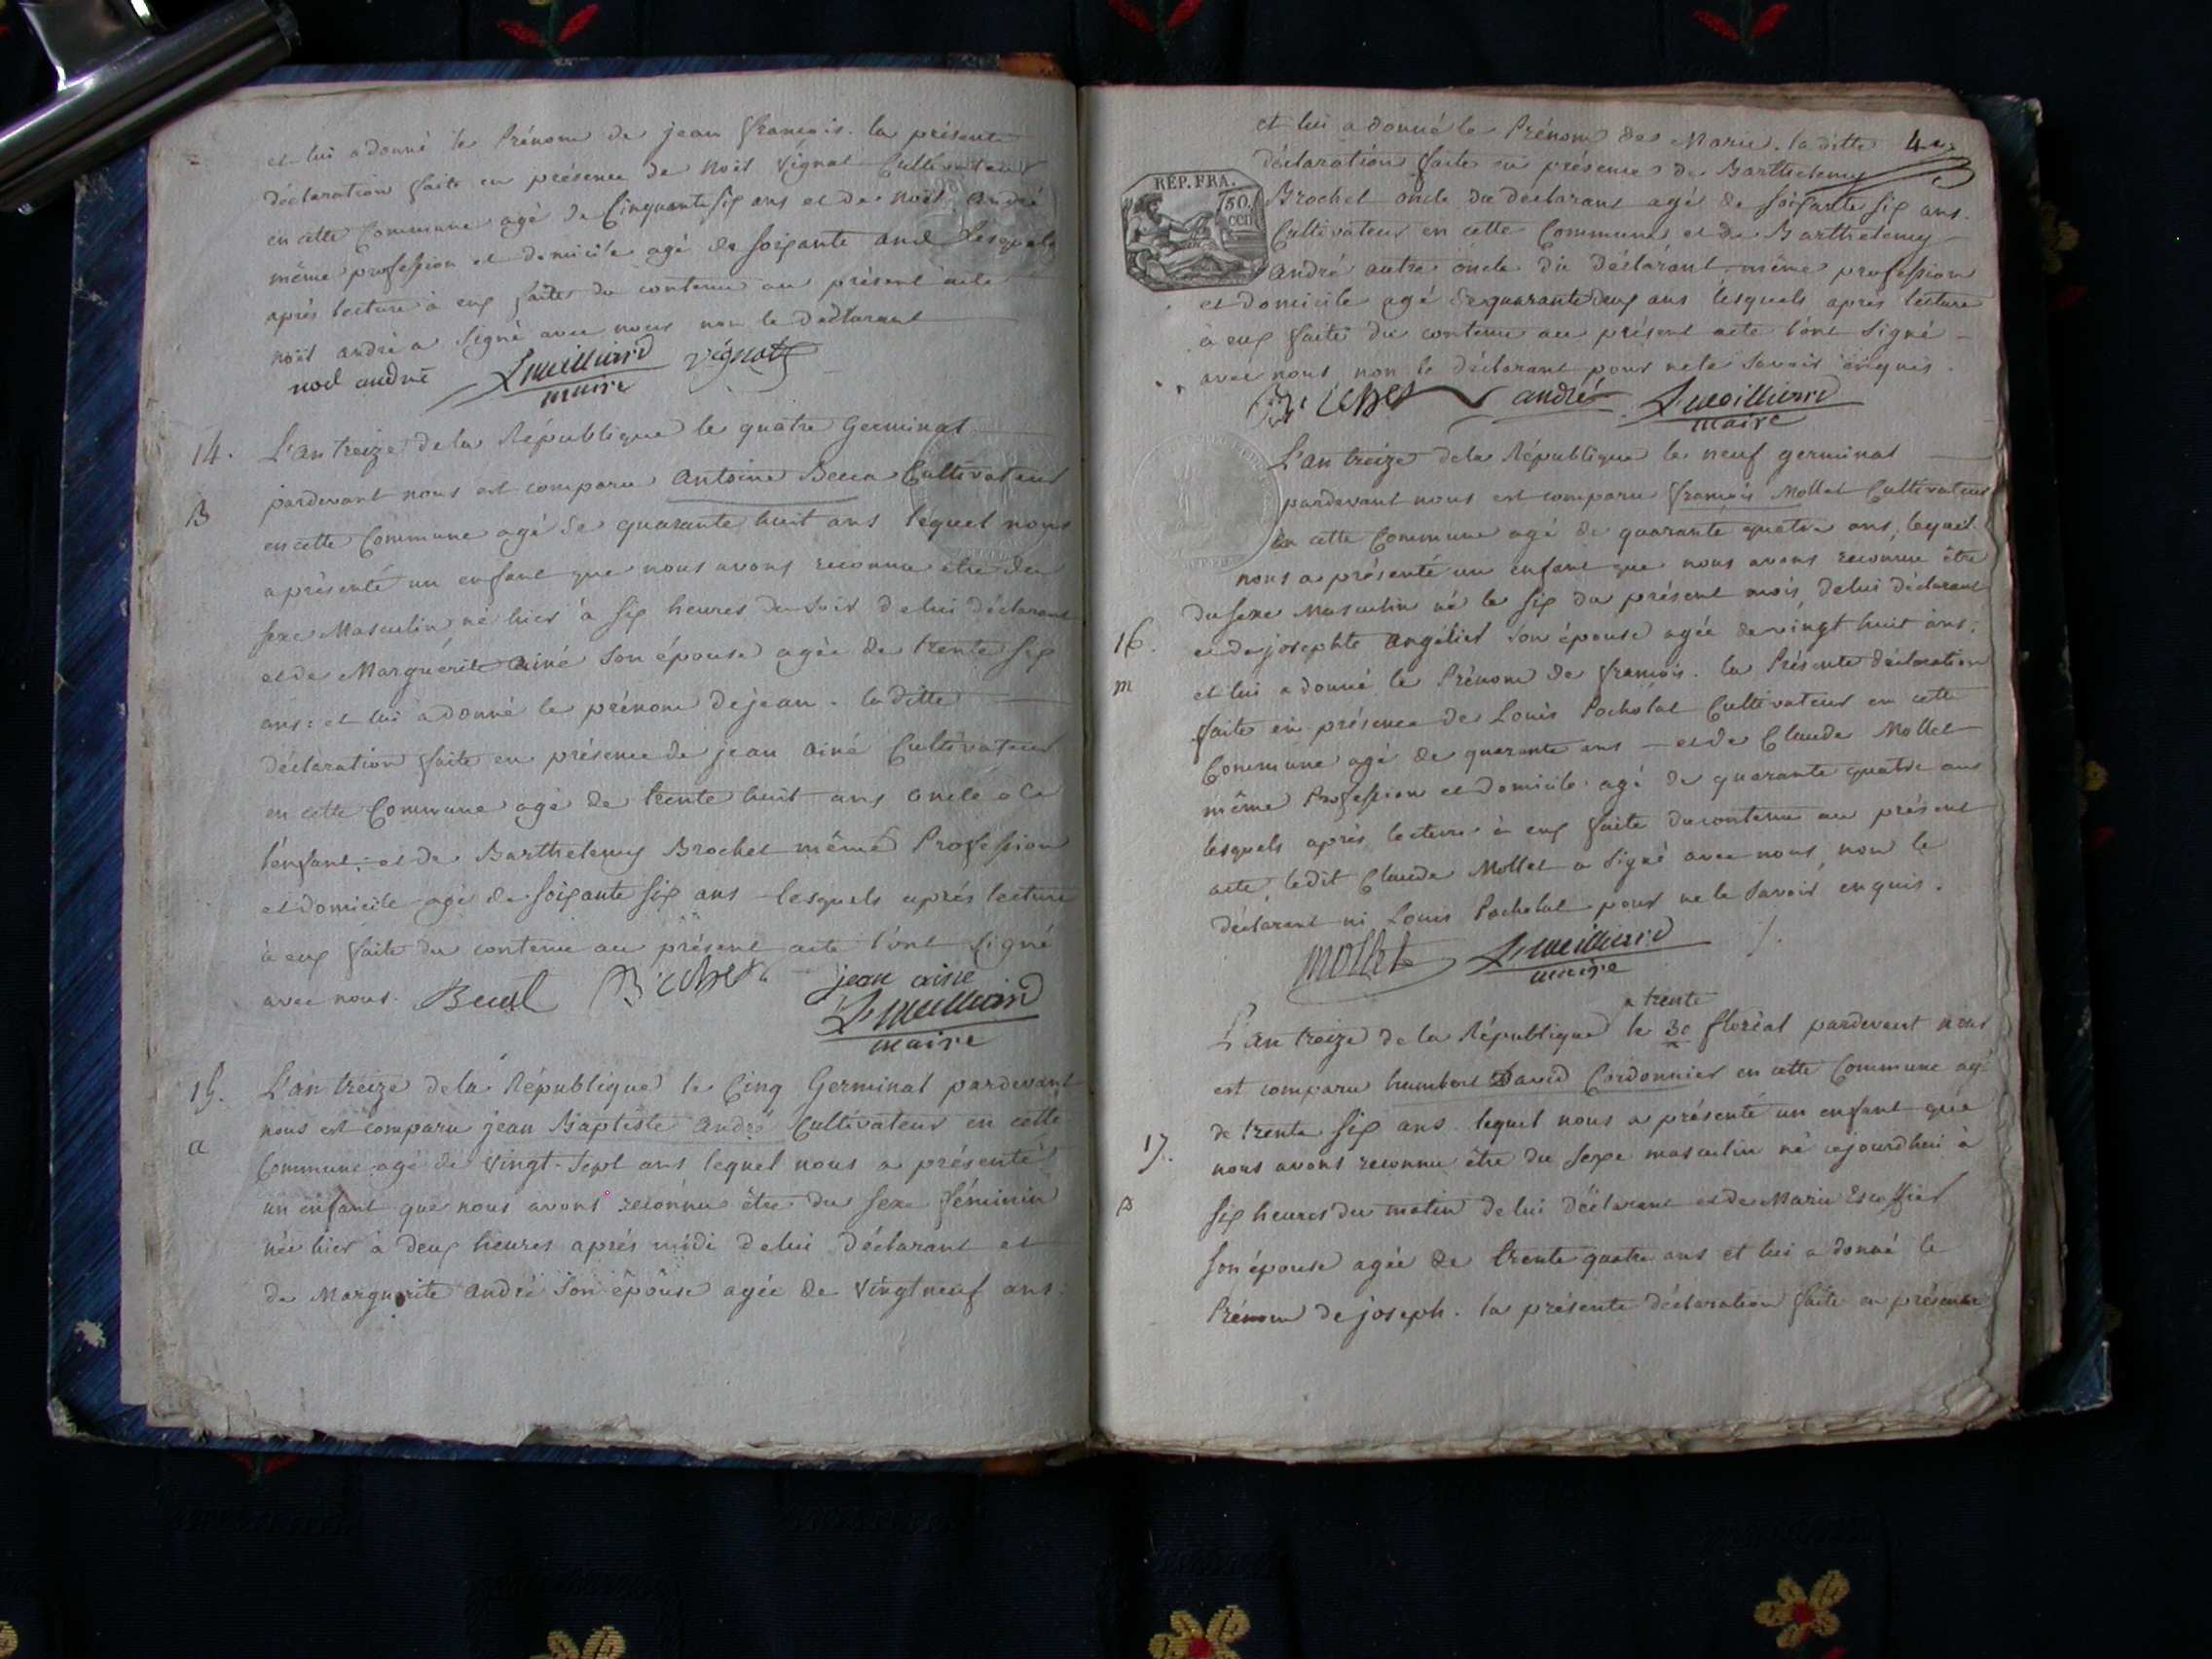 et lui a donné le Prénom de jean françois. la présente
déclaration faite en présence de Noël Vignat Cultivateur
en cette Commune agé de Cinquante six ans et de Noël André
même profession et domicile agé de soixante ans Lesquels
après lecture à eux faite du contenu au présent acte
noël andré a signé avec nous non le declarant
noel andré
maire
14. L'an treize de la République le quatre Germinal
pardevant nous est comparu Antoine Cultivateur
B
en cette Commune agé de quarante huit ans lequel nous
a présenté un enfant que nous avons reconnu etre du
sexe Masculin né hier à six heures du soir de lui déclarant
et de Marguérite ainé son épouse agée de trente six
ans: et lui a donné le prénom de jean. la ditte
déclaration faite en présence de jean ainé Cultivateur
en cette Commune agé de trente huit ans oncle a
l'enfant; et de Barthelemy Brochet même Profession
et domicile agé de soixante six ans lesquels après lecture
à eux faite du contenu au présent acte l'ont signé
avec nous.
jean aine
maire
15. L'an treize de la République le Cinq Germinal pardevant
nous est comparu jean Baptiste andré Cultivateur en cette
a
Commune agé de vingt-sept ans lequel nous a présenté
un enfant que nous avons reconnu être du sexe féminin
née hier à deux heures après midi de lui déclarant et
de Marguerite andré son épouse agée de vingt neuf ans:
et lui a donné le Prénom de Marie. la ditte
4
déclaration faite en présence de Barthelemy
REP. FRA.
50. cen
Brochet oncle du déclarant agé de soixante six ans.
Cultivateur en cette Commune et de Barthelemy
André autre oncle du déclarant même profession
et domicile agé de quarante deux ans lesquels après lecture
à eux faite du contenu au présent acte l'ont signé
avec nous non le déclarant pour ne le savoir enquis.
andré
maire
L'an treize de la République le neuf germinal
pardevant nous est comparu françois Mollet Cultivateur
en cette Commune agé de quarante quatre ans, lequel
nous a présenté un enfant que nous avons reconnu être
du sexe Masculin né le six du présent mois de lui déclarant
16. et de josephte Angélier son épouse agée de vingt huit ans;
m
et lui a donné le Prénom de françois. la Présente déclaration
faite en présence de Louis Pocholat Cultivateur en cette
Commune agé de quarante ans et de Claude Mollet
même Profession et domicile agé de quarante quatre ans
lesquels après lecture à eux faite du contenu au présent
acte, ledit Claude Mollet a signé avec nous, non le
déclarant ni Louis Pocholat pour ne le savoir enquis.
mollet
maire
trente
L'an treize de la République le 30 floréal pardevant nous
est comparu humbert David Cordonnier en cette Commune agé
de trente six ans. lequel nous a présenté un enfant que
17.
nous avons reconnu être du sexe masculin né cejourdhui à
D
six heures du matin de lui déclarant et de Marie Escoffier
son épouse agée de trente quatre ans et lui a donné le
Prénom de joseph. la présente déclaration faite en présence